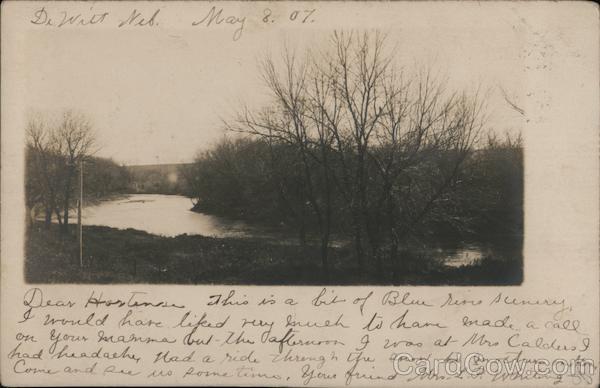 De Witt Neb. May 8. 07.
Dear Hortense This is a bit of Blue river scenery,
I would have liked very much to have made a call
on Your Mamma but the afternoon I was at Mrs Calders I
had headache, Had a ride through the
Come and see us some time. Your friend Mrs.
CardCow.com